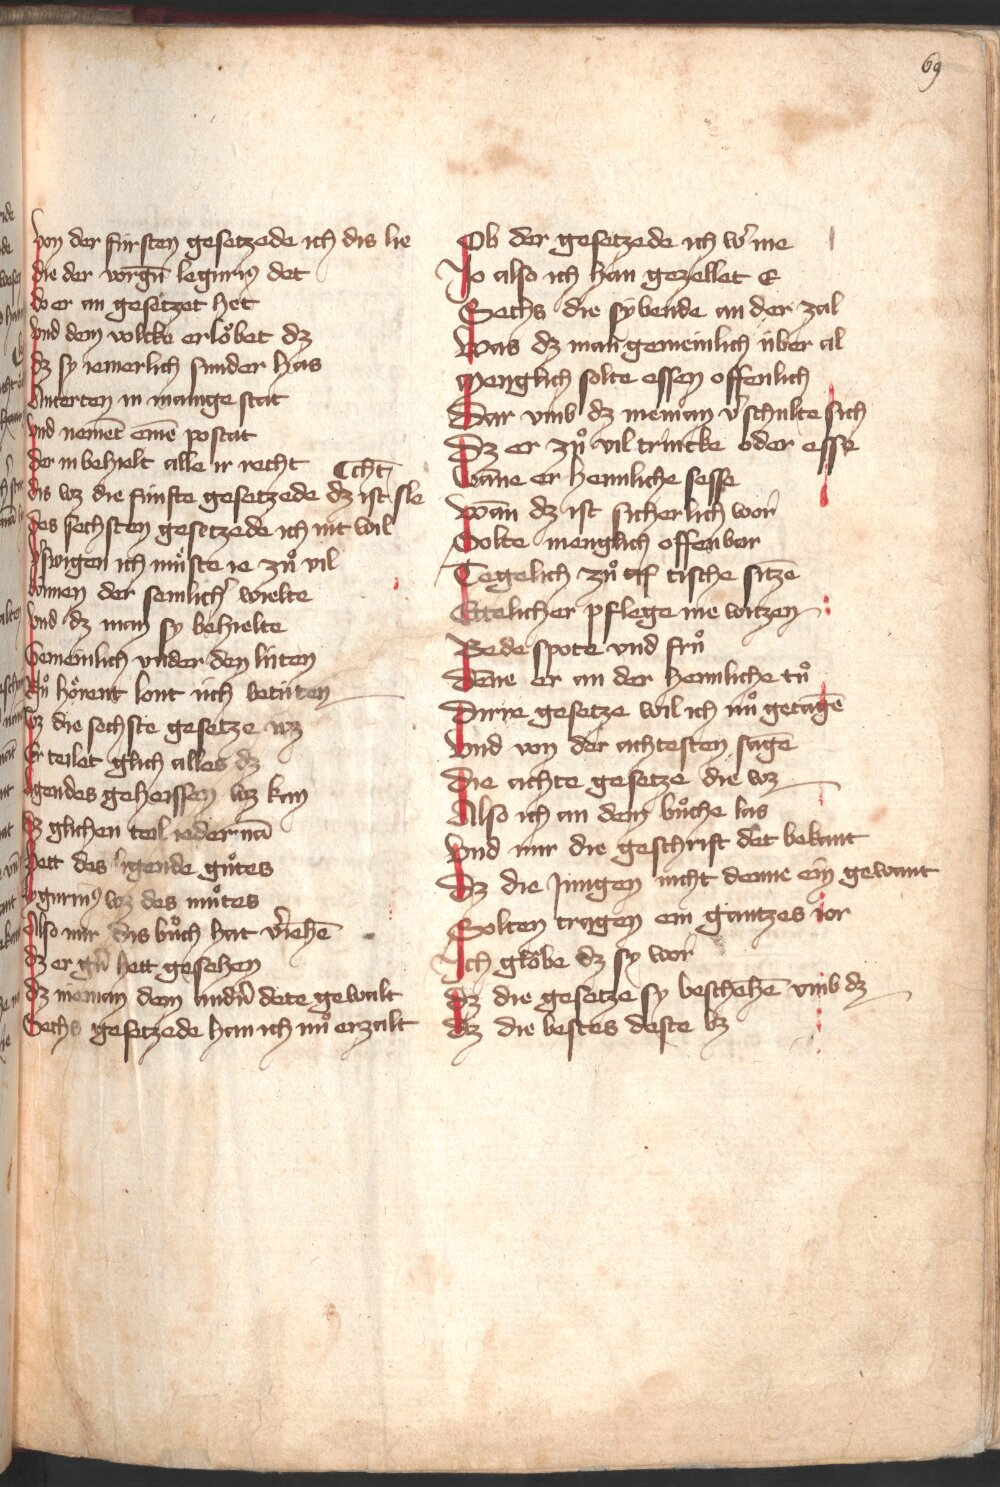 69
von der fúrsten gesetzede ich dis lie
die der vorgn̄ ligurius det
do er an gesetzet het
vnd dem volcke erlöbet dz
dz sy iemerlich sunder has
in mange stat
vnd nemēt eīnē postat
der in behielt alle ir recht
scht
dis wz die fúnfte gesetzede dz ist sle
des sechsten gesetzede ich nit wil
v'swigen ich mu̇ste ie zů vil
der semlich' wielte
vnd dz man sy behielte
Gemeinlich vnder den lúten
Nů hörent lont úch betúten
wz die sechste gesetze wz
Er teilet glich alles dz
geheissen wz kan
dz glichen teil ieder mā
hett des ligende gůtes
ligurius wz des můtes
Also mir dis bůch hat v'iehē
dz er hett gesehen
dz nieman dem and'n dete gewalt
Sechs gesetzede han ich nů erzalt
Ob der gesetzede ich w' me
Jo also ich han gezellet E
Sechs die sybende an der zal
Was dz man gemeinlich úber al
Menglich solte essen offenlich
Dar vmb dz nieman v'schulte sich
Dz er zů vil trincke oder esse
Wāne er heimliche sesse
Wān dz ist sicherlich wor
Solte menglich offenbor
Tegelich zů tische sitzē
Ettelicher pflege me witzen
Bede spote vnd frů
Dēne er an der heimliche tů
Dirre gesetze wil ich nů getagē
Vnd von der achtesten sagē
Die achte gesetze die wz
Also ich an dem bůche las
Vnd mir die geschrift det bekant
Dz die jungen nicht denne ein gewant
Solten tragen ein gantzes ior
Ich glöbe dz sy wor
Dz die gesetze sy beschehē vmb dz
Dz die bestes deste bz